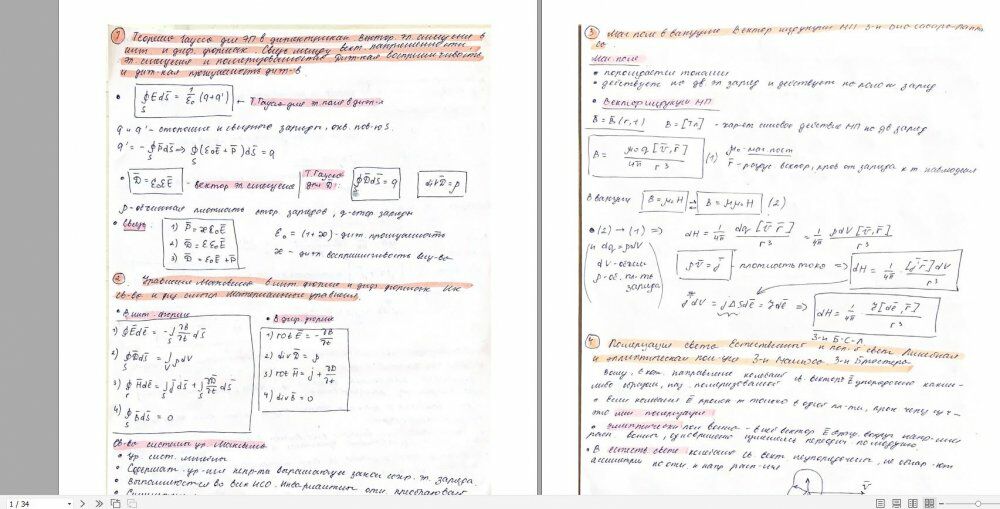 1 Теорема Гаусса для ЭП в диэлектриках Вектор эл. смещения в
инт. и диф. формах. Связь между вект. напряженности,
эл смещения и поляризованностью Диэл-кая восприимчивость
и диэл-кая проницаемость диэл-в.
∮ E dS = 1/ε₀ (q+q') ← Т. Гаусса для эл. поля в диэл-х
S
q и q' - сторонние и связные заряды, охв. пов-ю S.
q' = -∮ P̄dS̄ ⇒ ∮(ε₀Ē + P̄)dS̄ = q
D̄ = εε₀Ē - вектор эл смещения Т. Гаусса для D̄: ∮D̄dS̄ = q div D̄ = ρ
ρ - объемная плотность стор. зарядов, q - стор. заряды
Связь: 1) P̄ = æε₀Ē
2) D̄ = εε₀Ē
3) D̄ = ε₀Ē + P̄
ε = (1+æ) - диэл. проницаемость
æ - диэл восприимчивость вещ-ва
2. Уравнения Максвелла в инт. форме и диф. формах. Их
св-ва и физ смысл Материальные уравнения.
В инт. форме
1) ∮ Ēdℓ̄ = -∫ ∂B/∂t dS̄
2) ∮ D̄dS̄ = ∫ ρdV
3) ∮ H̄dℓ̄ = ∫ j̄dS̄ + ∫ ∂D̄/∂t dS̄
4) ∮ B̄dS̄ = 0
В диф. форме
1) rot Ē = -∂B/∂t
2) div D̄ = ρ
3) rot H̄ = j + ∂D/∂t
4) div B̄ = 0
Св-ва системы ур. Максвелла
Ур. сист. линейны
Содержат ур-ния непр-ти выражающую закон сохр. эл. заряда.
Выполняются во всех ИСО. Инвариантны отн. преобразов
1 / 34
3 Маг поле в вакууме Вектор индукции МП З-н Био-Савара-Лапласа
Маг. поле
порождается токами
действует на дв. эл заряд и действует на
Вектор индукции МП
B̄ = B̄(r,t) B = [Тл] - хар-ет силовое действие МП на дв заряд
B = μ₀q[v̄,r̄] / 4π r³ (1) μ₀ - маг. пост
r̄ - радиус вектор, пров от заряда к т. наблюдения
В вакууме B̄ = μ₀H ⇄ B = μμ₀H (2)
(2) → (1) ⇒ dH = 1/4π dq[v̄ r̄]/r³ = 1/4π ρdV[v̄,r̄]/r³
и dq = ρdV
dV - объем
ρ - об. пл-ть заряда
ρv̄ = j̄ - плотность тока ⇒ dH = 1/4π [j̄ r̄]dV/r³
j̄dV = jΔSdℓ̄ = Jdℓ̄ ⇒ dH = 1/4π J[dℓ̄,r̄]/r³
З-н Б-С-Л
4. Поляризация света Естественный и пол-й свет Линейная
и эллиптическая пол-ция З-н Малюса З-н Брюстера
Волну, в кот. направление колебаний св. вектора Ē упорядочено каким-
либо образом, наз. поляризованной
если колебания Ē происх-т только в одной пл-ти, прох через луч -
это лин поляризация
В естеств свете колебания св. вект неупорядочены, не обнар-ют
асимметрии по отн. к напр расп-ния
V̄